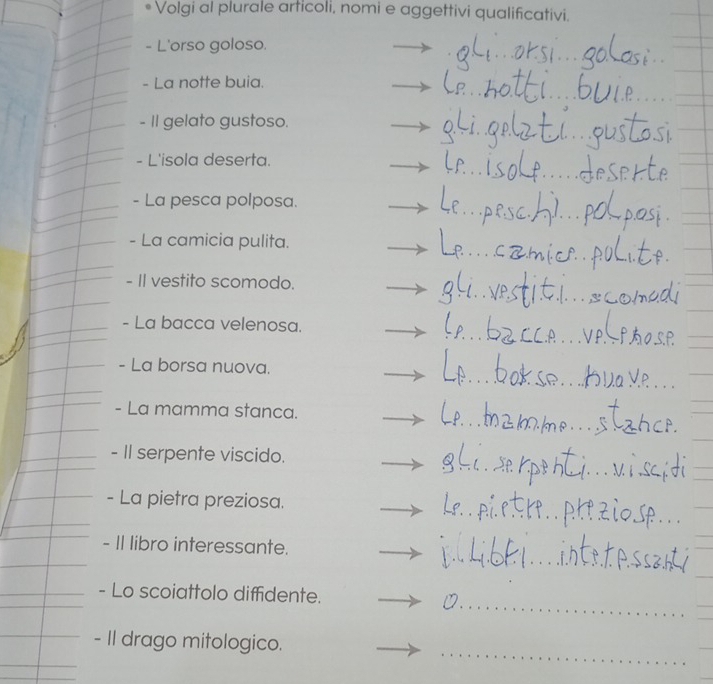 • Volgi al plurale articoli, nomi e aggettivi qualificativi.
- L'orso goloso. → gli orsi golosi
- La notte buia. → le notti buie
- Il gelato gustoso. → gli gelati gustosi
- L'isola deserta. → le isole deserte
- La pesca polposa. → Le peschi polposi.
- La camicia pulita. → Le camice polite.
- Il vestito scomodo. → gli vestiti scomodi
- La bacca velenosa. → le bacce velenose.
- La borsa nuova. → Le borse nuove
- La mamma stanca. → le mamme stance.
- Il serpente viscido. → gli serpenti viscidi
- La pietra preziosa. → Le pietre preziose
- Il libro interessante. → i libri interessanti
- Lo scoiattolo diffidente. → o
- Il drago mitologico. →